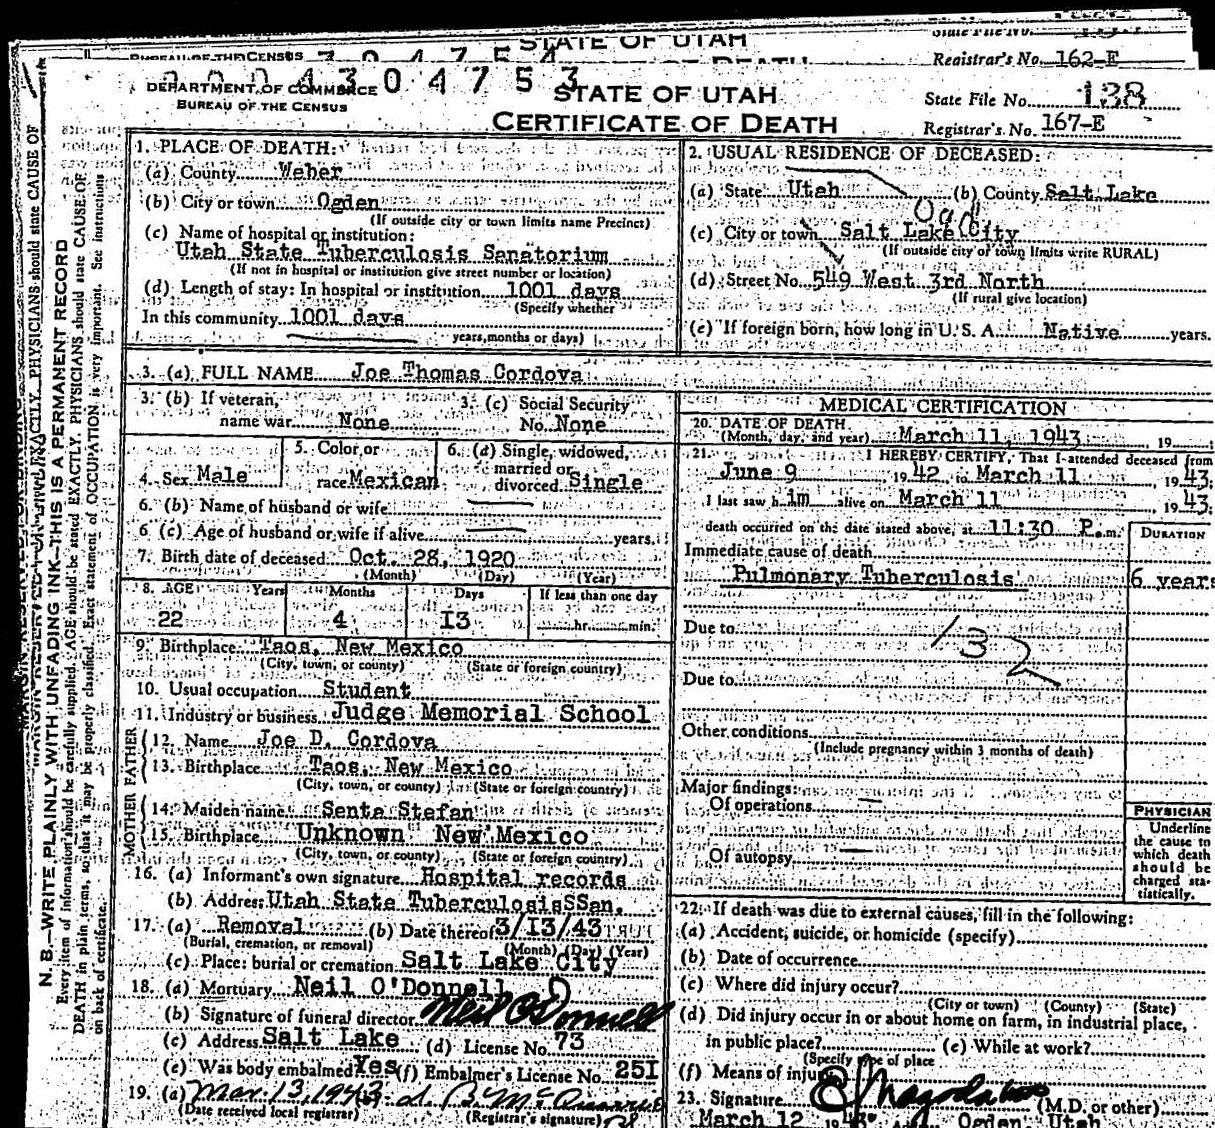 STATE OF UTAH
BUREAU OF THE CENSUS
Registrar's No. 162-E
304753
DEPARTMENT OF COMMERCE
BUREAU OF THE CENSUS
STATE OF UTAH
CERTIFICATE OF DEATH
State File No. 138
Registrar's No. 167-E
N. B.—WRITE PLAINLY WITH UNFADING INK—THIS IS A PERMANENT RECORD
Every item of information should be carefully supplied. AGE should be stated EXACTLY. PHYSICIANS should state CAUSE OF
DEATH in plain terms, so that it may be properly classified. Exact statement of OCCUPATION is very important. See instructions
on back of certificate.
1. PLACE OF DEATH:
(a) County Weber
(b) City or town Ogden
(If outside city or town limits name Precinct)
(c) Name of hospital or institution:
Utah State Tuberculosis Sanatorium
(If not in hospital or institution give street number or location)
(d) Length of stay: In hospital or institution 1001 days
(Specify whether
In this community 1001 days
years, months or days)
2. USUAL RESIDENCE OF DECEASED:
(a) State Utah (b) County Salt Lake
(c) City or town Salt Lake City
(If outside city or town limits write RURAL)
(d) Street No. 549 West 3rd North
(If rural give location)
(e) If foreign born, how long in U. S. A. Native years.
3. (a) FULL NAME Joe Thomas Cordova
3. (b) If veteran,
name war None
3. (c) Social Security
No. None
4. Sex Male
5. Color or
race Mexican
6. (a) Single, widowed,
married or
divorced Single
6. (b) Name of husband or wife
6 (c) Age of husband or wife if alive years.
7. Birth date of deceased Oct. 28, 1920
(Month) (Day) (Year)
8. AGE Years Months Days If less than one day
22 4 13 hr. min.
9. Birthplace Taos, New Mexico
(City, town, or county) (State or foreign country)
10. Usual occupation Student
11. Industry or business Judge Memorial School
FATHER
12. Name Joe D. Cordova
13. Birthplace Taos, New Mexico
(City, town, or county) (State or foreign country)
MOTHER
14. Maiden name Senta Stefan
15. Birthplace Unknown New Mexico
(City, town, or county) (State or foreign country)
16. (a) Informant's own signature Hospital records
(b) Address Utah State TuberculosisSSan.
17. (a) Removal (b) Date thereof 3/13/43
(Burial, cremation, or removal) (Month) (Day) (Year)
(c) Place: burial or cremation Salt Lake City
18. (a) Mortuary Neil O'Donnell
(b) Signature of funeral director Neil O'Donnell
(c) Address Salt Lake (d) License No. 73
(e) Was body embalmed Yes (f) Embalmer's License No. 251
19. (a) Mar. 13, 1943
(Date received local registrar) (Registrar's signature)
MEDICAL CERTIFICATION
20. DATE OF DEATH
(Month, day, and year) March 11, 1943 19
21. I HEREBY CERTIFY, That I attended deceased from
June 9 1942, to March 11 1943;
I last saw him alive on March 11 1943;
death occurred on the date stated above, at 11:30 P.m.
DURATION
Immediate cause of death
Pulmonary Tuberculosis 6 years
Due to
132
Due to
Other conditions
(Include pregnancy within 3 months of death)
Major findings:
Of operations
Of autopsy
PHYSICIAN
Underline
the cause to
which death
should be
charged sta-
tistically.
22. If death was due to external causes, fill in the following:
(a) Accident, suicide, or homicide (specify)
(b) Date of occurrence
(c) Where did injury occur?
(City or town) (County) (State)
(d) Did injury occur in or about home on farm, in industrial place,
in public place? (e) While at work?
(Specify type of place
(f) Means of injury
23. Signature (M.D. or other)
March 12 Ogden, Utah